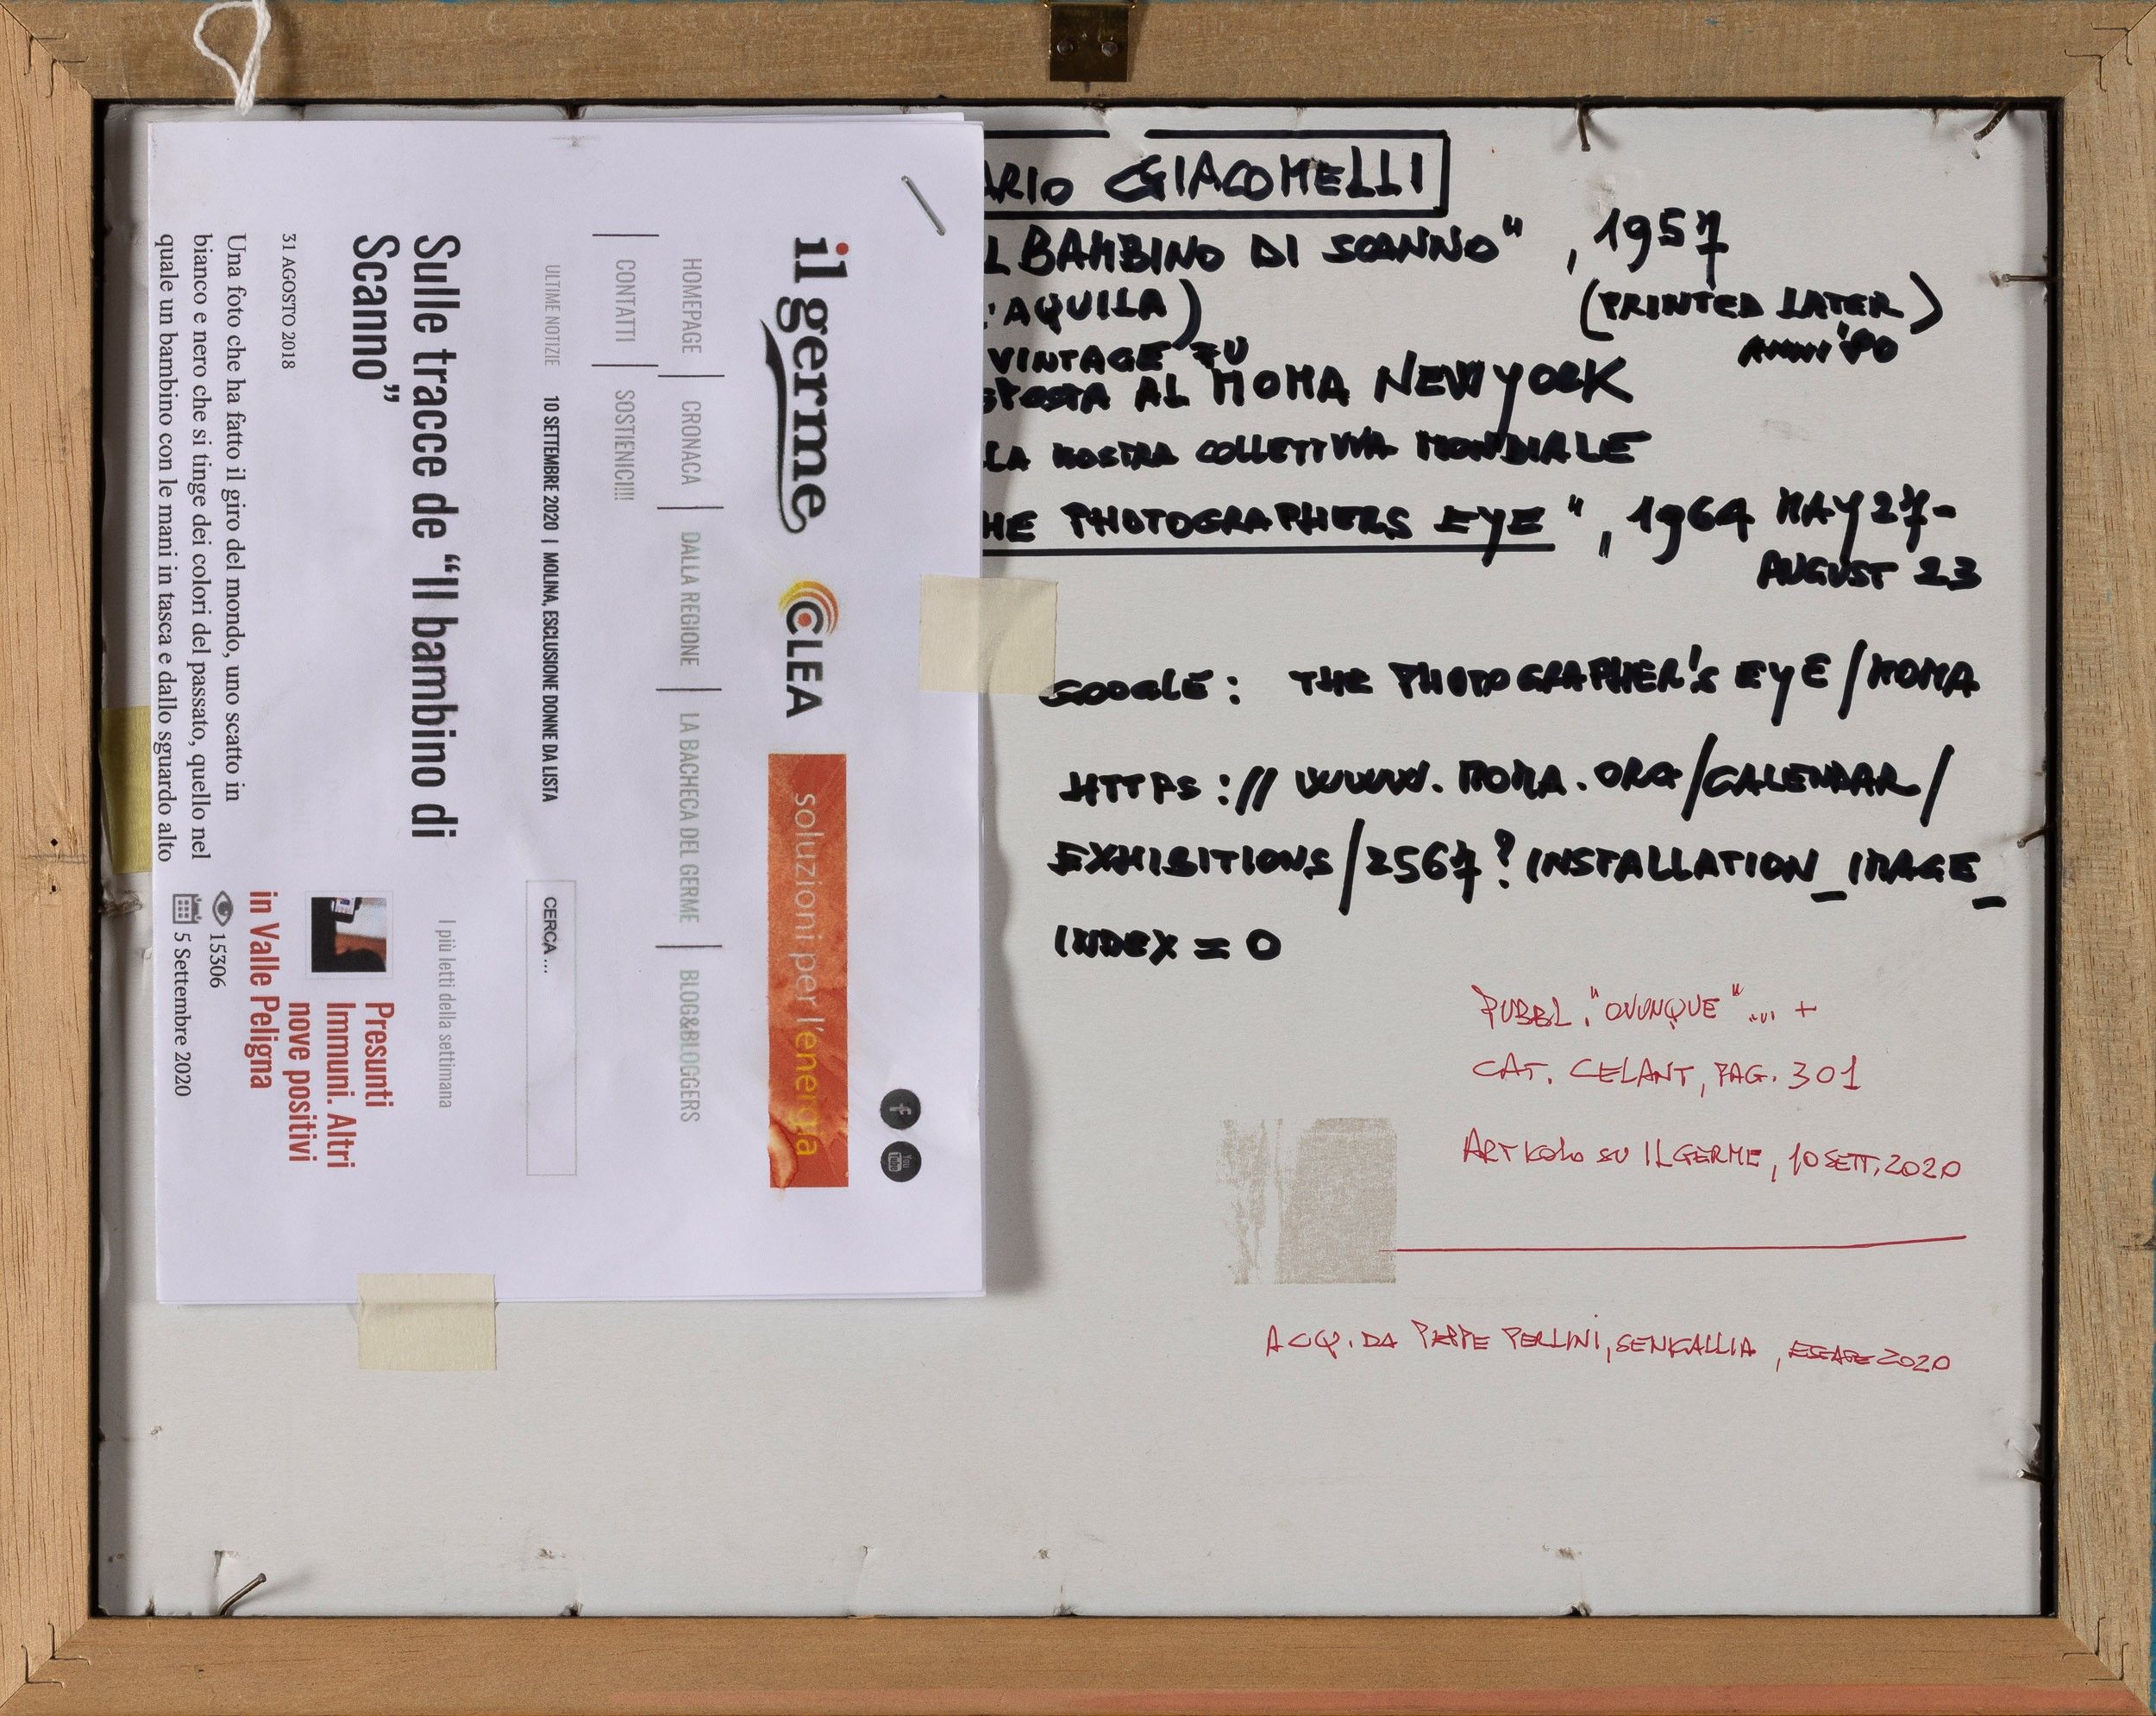 il germe
CLEA
soluzioni per l'energia
f
You Tube
HOMEPAGE | CRONACA | DALLA REGIONE | LA BACHECA DEL GERME | BLOG&BLOGGERS
CONTATTI | SOSTIENICI!!!!
ULTIME NOTIZIE 10 SETTEMBRE 2020 | MOLINA, ESCLUSIONE DONNE DA LISTA
CERCA ...
Sulle tracce de “Il bambino di
Scanno”
31 AGOSTO 2018
Una foto che ha fatto il giro del mondo, uno scatto in
bianco e nero che si tinge dei colori del passato, quello nel
quale un bambino con le mani in tasca e dallo sguardo alto
I più letti della settimana
Presunti
Immuni. Altri
nove positivi
in Valle Peligna
15306
5 Settembre 2020
ARIO GIACOMELLI
L BAMBINO DI SCANNO", 1957
'AQUILA) (PRINTED LATER)
ANNI '80
VINTAGE FU
SPOSTA AL MOMA NEW YORK
LA MOSTRA COLLETTIVA MONDIALE
HE PHOTOGRAPHERS EYE", 1964 MAY 27-
AUGUST 23
GOOGLE: THE PHOTOGRAPHER'S EYE/MOMA
HTTPS://WWW.MOMA.ORG/CALENDAR/
EXHIBITIONS/2567?INSTALLATION_IMAGE_
INDEX=0
PUBBL. "OVUNQUE"... +
CAT. CELANT, PAG. 301
ARTICOLO SU IL GERME, 10 SETT. 2020
ACQ. DA PEPPE PERLINI, SENIGALLIA, ESTATE 2020